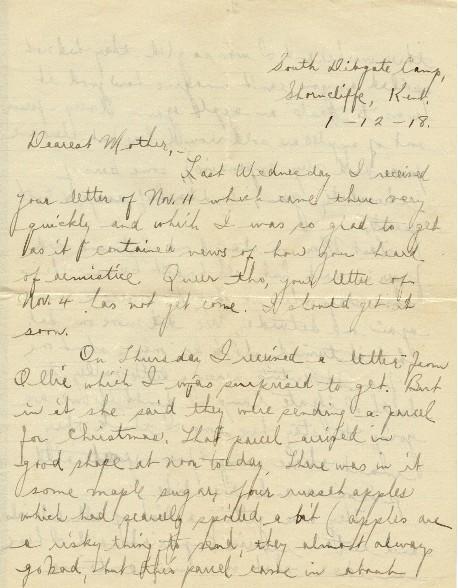 South Dibgate Camp,
Shorncliffe, Kent.
1-12-18.
Dearest Mother,-
Last Wednesday I received
your letter of Nov. 11 which came thru very
quickly and which I was so glad to get
as it contained news of how you heard
of armistice. Queer tho, your letter of
Nov. 4 has not yet come. I should get it
soon.
On Thursday I received a letter from
Ollie which I was surprised to get. But
in it she said they were sending a parcel
for Christmas. That parcel arrived in
good shape at noon today. There was in it
some maple sugar, four russet apples
which had scarcely spoiled a bit (apples are
a risky thing to send, they almost always
go bad, but this parcel came in about